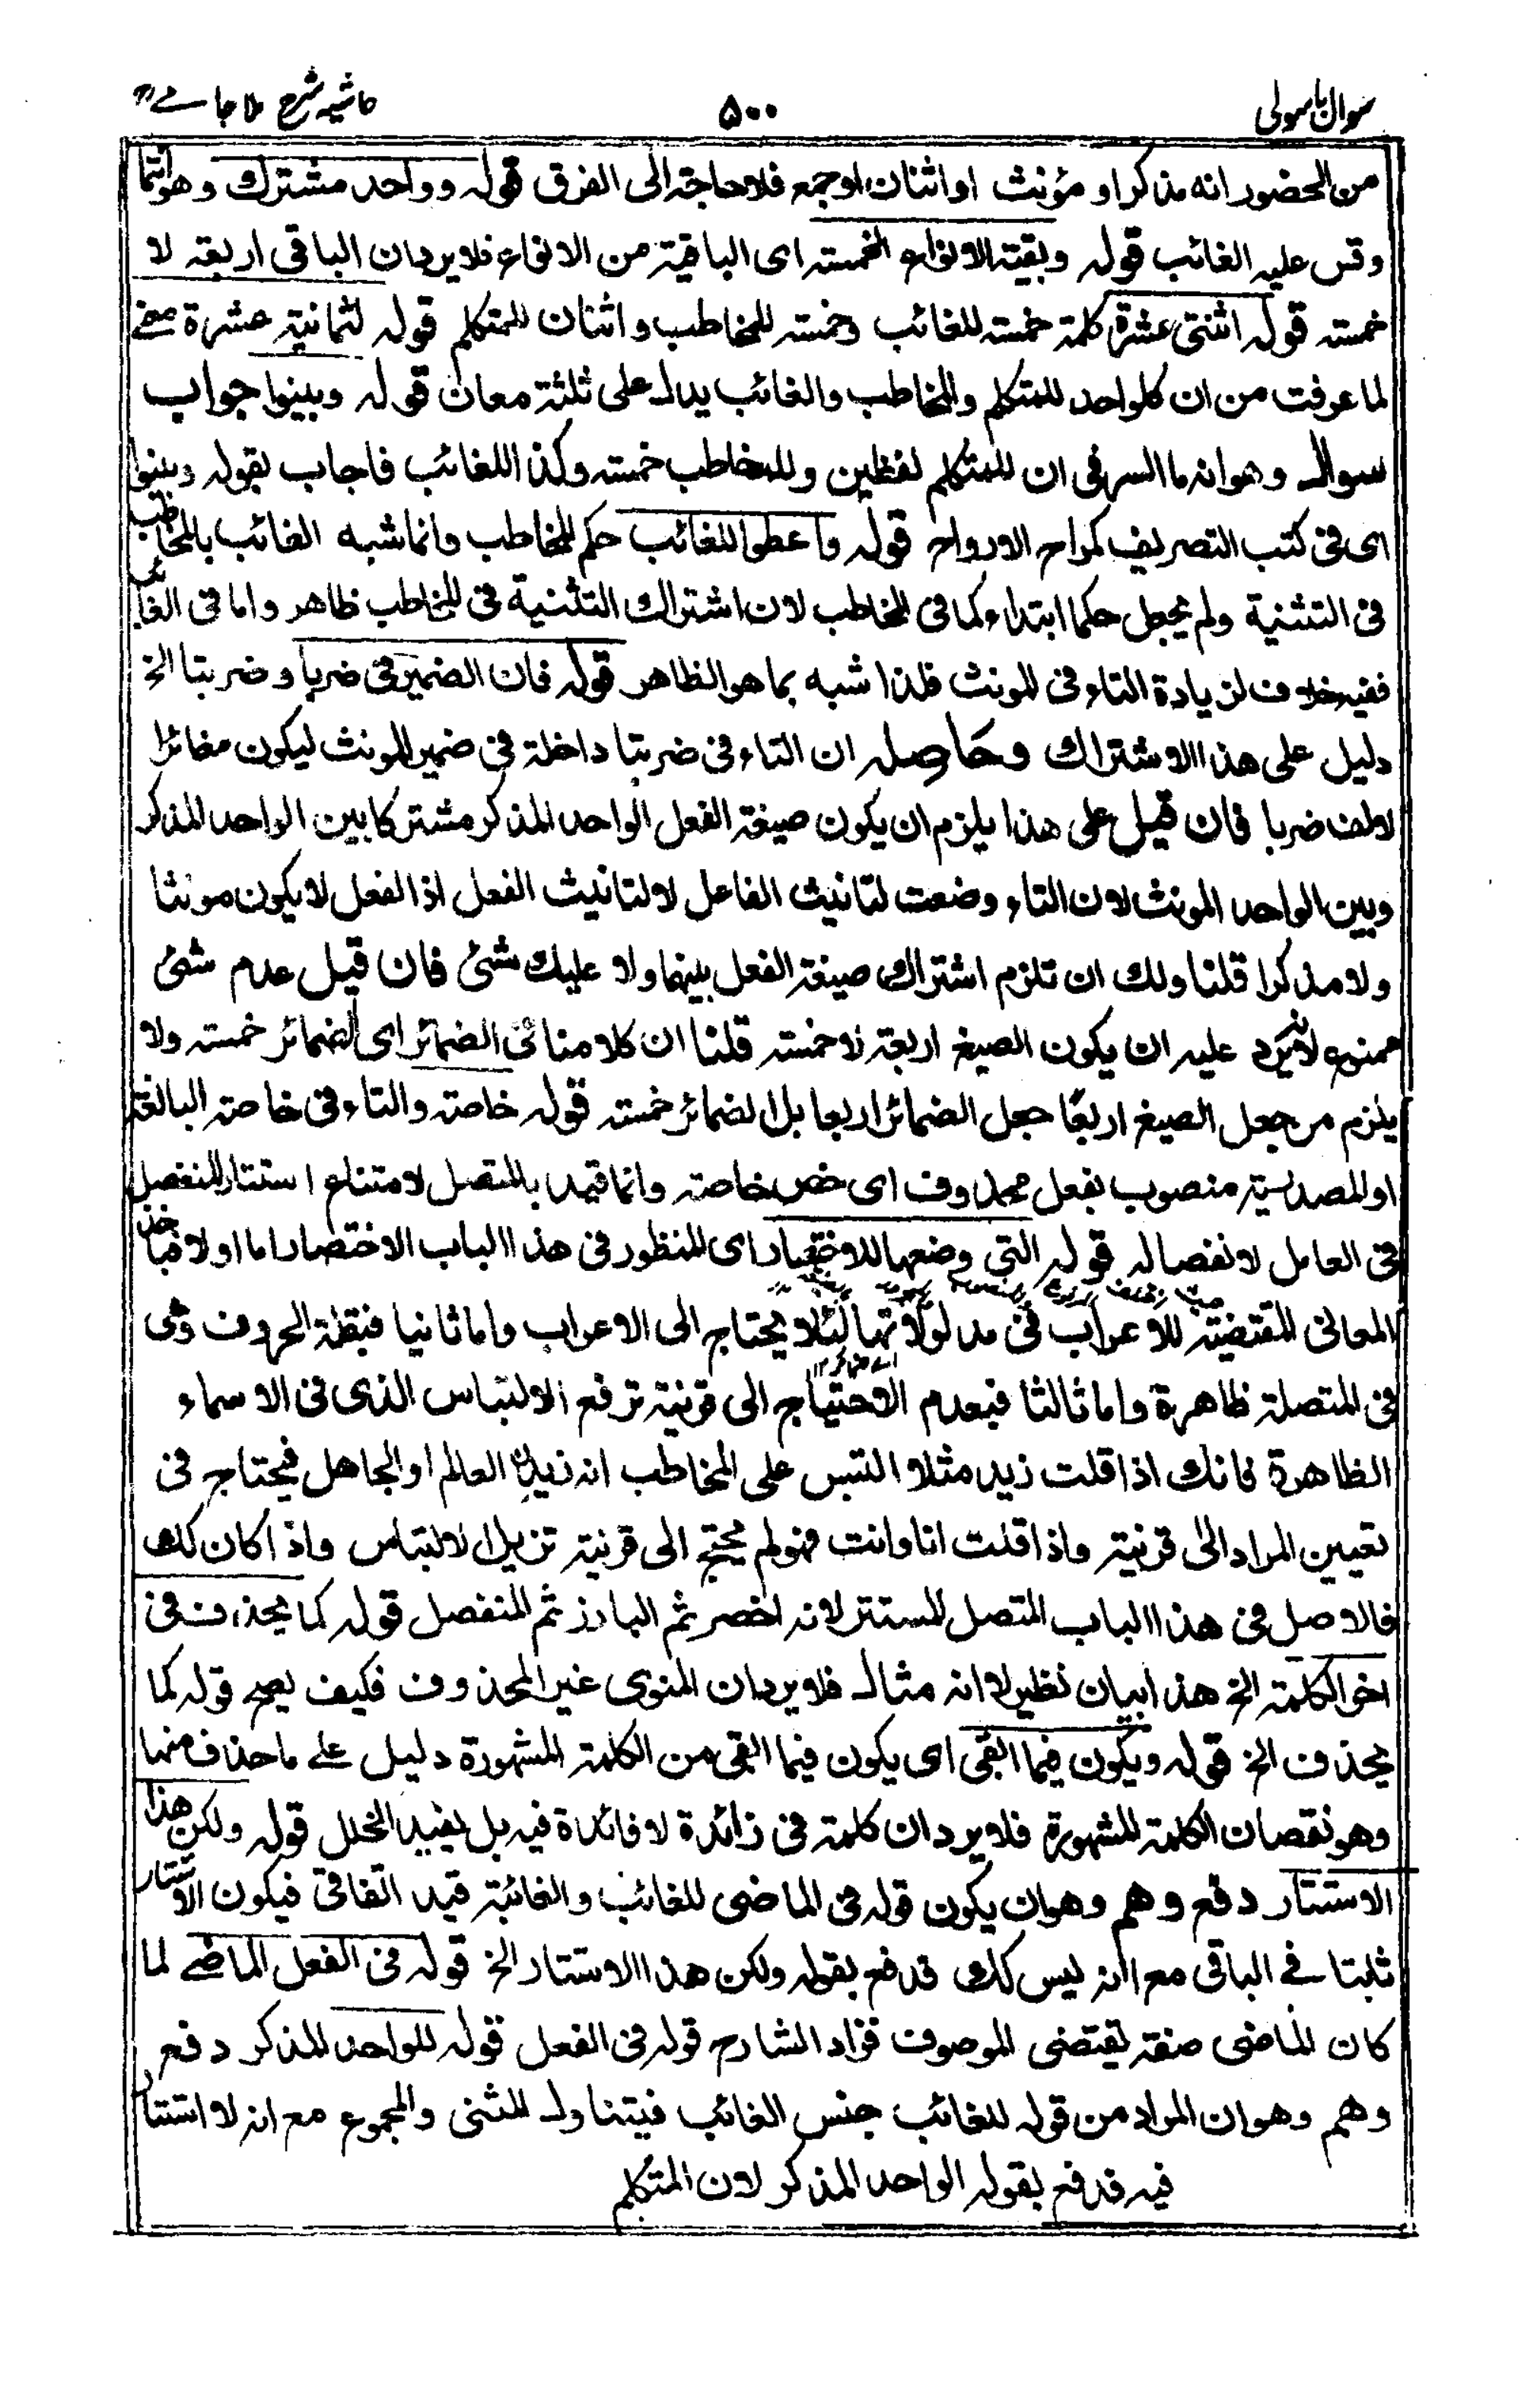 سوال باسولی ۵۰۰ حاشیہ شرح ملا جامے
من الحضور انه مذکر او مؤنث او اثنان او جمع فلا حاجة الی الفرق قوله وواحد مشترك وهو انتما
وقس علیه الغائب قوله وبقیة الانواع الخمسة ای الباقیة من الانواع فلا یرد ان الباقی اربعة لا
خمسة قوله اثنتی عشرة کلمة خمسة للغائب وخمسة للمخاطب واثنان للمتکلم قوله لثمانیة عشرة معنے
لما عرفت من ان کلواحد للمتکلم والمخاطب والغائب یدل علی ثلثة معان قوله وبینوا جواب
سوال وهو انه ما السر فی ان للمتکلم لفظین وللمخاطب خمسة وکذا للغائب فاجاب بقوله وبینوا
ای فی کتب التصریف کمراح الارواح قوله واعطوا للغائب حکم المخاطب وانما شبه الغائب بالمخاطب
فی التثنیة ولم یجعل حکما ابتداء کما فی المخاطب لان اشتراك التثنیة فی المخاطب ظاهر واما فی الغائب
ففیه خلاف لزیادة التاء فی المونث فلذا شبه بما هو الظاهر قوله فان الضمیر فی ضربا وضربتا الخ
دلیل علی هذا الاشتراك وحاصله ان التاء فی ضربتا داخلة فی ضمیر المونث لیکون مغائرا
لالف ضربا فان قیل علی هذا یلزم ان یکون صیغة الفعل الواحد المذکر مشترکا بین الواحد المذکر
وبین الواحد المونث لان التاء وضعت لتانیث الفاعل لا لتانیث الفعل اذ الفعل لا یکون مونثا
ولا مذکرا قلنا ولك ان تلزم اشتراك صیغة الفعل بینهما ولا علیك شئ فان قیل عدم شئ
ممنوع لانه یرد علیه ان یکون الصیغ اربعة لا خمسة قلنا ان کلامنا فی الضمائر ای الضمائر خمسة ولا
یلزم من جعل الصیغ اربعا جعل الضمائر اربعا بل الضمائر خمسة قوله خاصة والتاء فی خاصة البالغة
او المصدریة منصوب بفعل محذوف ای خص خاصة وانما قید بالمتصل لامتناع استتار المنفصل
فی العامل لانفصاله قوله التی وضعها للاختصار ای المنظور فی هذا الباب الاختصار اما اولا فباخذ
المعانی المقتضیة للاعراب فی مدلولاتها لئلا یحتاج الی الاعراب واما ثانیا فبقلة الحروف وهی
فی المتصلة ظاهرة واما ثالثا فبعدم الاحتیاج الی قرینة ترفع الالتباس الذی فی الاسماء
الظاهرة فانك اذا قلت زید مثلا التبس علی المخاطب انه زید العالم او الجاهل فیحتاج فی
تعیین المراد الی قرینة واذا قلت انا وانت وهو لم یحتج الی قرینة تزیل الالتباس واذا کان کذلك
فالاصل فی هذا الباب المتصل المستتر لانه اخصر ثم البارز ثم المنفصل قوله کما یحذف فی
اخر الکلمة الخ هذا بیان نظیر لا انه مثال فلا یرد ان المنوی غیر المحذوف فکیف یصح قوله کما
یحذف الخ قوله ویکون فیما ابقی ای یکون فیما ابقی من الکلمة المشهورة دلیل علے ما حذف منها
وهو نقصان الکلمة المشهورة فلا یرد ان کلمة فی زائدة لا فائدة فیه بل یفید الخلل قوله ولکن هذا
الاستتار دفع وهم وهو ان یکون قوله فی الماضی للغائب والغائبة قید اتفاقی فیکون الاستتار
ثابتا فے الباقی مع انه لیس کذلك فدفع بقوله ولکن هذا الاستتار الخ قوله فی الفعل الماضے لما
کان الماضی صفة یقتضی الموصوف فزاد الشارح قوله فی الفعل قوله للواحد المذکر دفع
وهم وهو ان المراد من قوله للغائب جنس الغائب فیتناول المثنی والمجموع مع انه لا استتار
فیه فدفع بقوله الواحد المذکر لان المتکلم